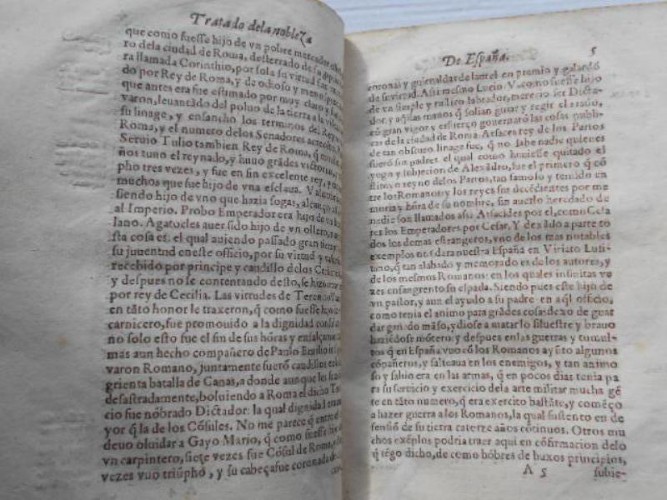 Tratado dela nobleza
que como fuesse hijo de vn pobre mercader
ro dela ciudad de Roma, desterrado de su
ra llamada Corinthio, por sola su virtud fue
do por Rey de Roma, y de odioso y menospre
que antes era fue estimado por muy claro y
varon, leuantādo del poluo de la tierra a la
su linage, y ensancho los terminos del Reyno
Roma, y el numero delos Senadores
Seruio Tulio tambien Rey de Roma, q̄
años tuuo el reynado, y huuo grādes victorias, y
pho tres vezes, y fue en fin excelente rey, y
muchos que fue hijo de vna esclaua.
siendo hijo de vno que hazia sogas, alcanço
al Imperio. Probo Emperador era hijo de
lano. Agatocles auer sido hijo de vn ollero,
sta cosa es. el qual auiendo passado gran tiempo
su juuentud en este officio, por su virtud y
recebido por principe y caudillo delos
y despues no se contentando desto, se hizo
por rey de Cecilia. Las virtudes de
en tāto honor le traxeron, q̄ como fuesse hijo
carnicero, fue promouido a la dignidad
no solo esto fue el fin de sus hōras y ensalçam
mas aun hecho compañero de Paulo Emilio
varon Romano, juntamente fuerō caudillos
grienta batalla de Canas, a donde aun que lo
desastradamente, boluiendo a Roma el dicho
cio fue nōbrado Dictador: la qual dignidad
yor q̄ la de los Cōsules. No me parece q̄ entre
deuo oluidar a Gayo Mario, q̄ como fuesse hijo
vn carpintero, siete vezes fue Cōsul de Roma,
vezes vuo triūpho, y su cabeça fue coronada
De España. 5
coronas y guirnaldas de laurel en premio y galardō
de su virtud. Assi mesmo Lucio. V. como fuesse hijo
de vn simple y rustico labrador, merecio ser Dicta-
dor, y aq̄llas manos q̄ solian guiar y regir el arado,
cō gran vigor y esfuerço gouernarō las cosas publi-
cas de la ciudad de Roma. Arsaces rey de los Partos
de tan obscuro linage fue, q̄ no sabe nadie quienes
fuerō sus padres. el qual como huuiesse quitado el
yugo y subjecion de Alexādro, fue el primero q̄ cō
stituyo reyno delos Partos, tan famoso y temido en
tre los Romanos: y los reyes sus decēdientes por me
moria y hōra de su nombre, sin auerlo heredado de
nadie son llamados assi Arsacides por el, como Cesa
res los Emperadores por Cesar. Y dexādo a parte to
dos los demas estrangeros, vno de los mas notables
exemplos nos da a nuestra España en Viriato Lusi-
tano, q̄ tan alabado y memorado es de los autores, y
de los mesmos Romanos: en los quales infinitas ve
zes ensangrento su espada. Siendo pues este hijo de
vn pastor, y aun el ayudo a su padre en aq̄l officio,
como tenia el animo para grādes cosas dexo de guar
dar gando māso, y diose a matar lo siluestre y brauo
haziēdose mōtero: y despues en las guerras y tumul-
tos q̄ en España vuo cō los Romanos ayūto algunos
cōpañeros, y salteaua en los enemigos, y tan animo
so y sabio era en las armas, q̄ en pocos dias tenia pa
ra su seruicio y exercicio dela arte militar mucha gē
te en tāto numero, q̄ era exercito bastāte, y comēço
a hazer guerra a los Romanos, la qual sustento en de
fensiō de su tierra catorze años cōtinuos. Otros mu
chos exēplos podria traer aqui en cōfirmacion delo
q̄ tēgo dicho, de como hōbres de baxos principios,
A 5 subie-